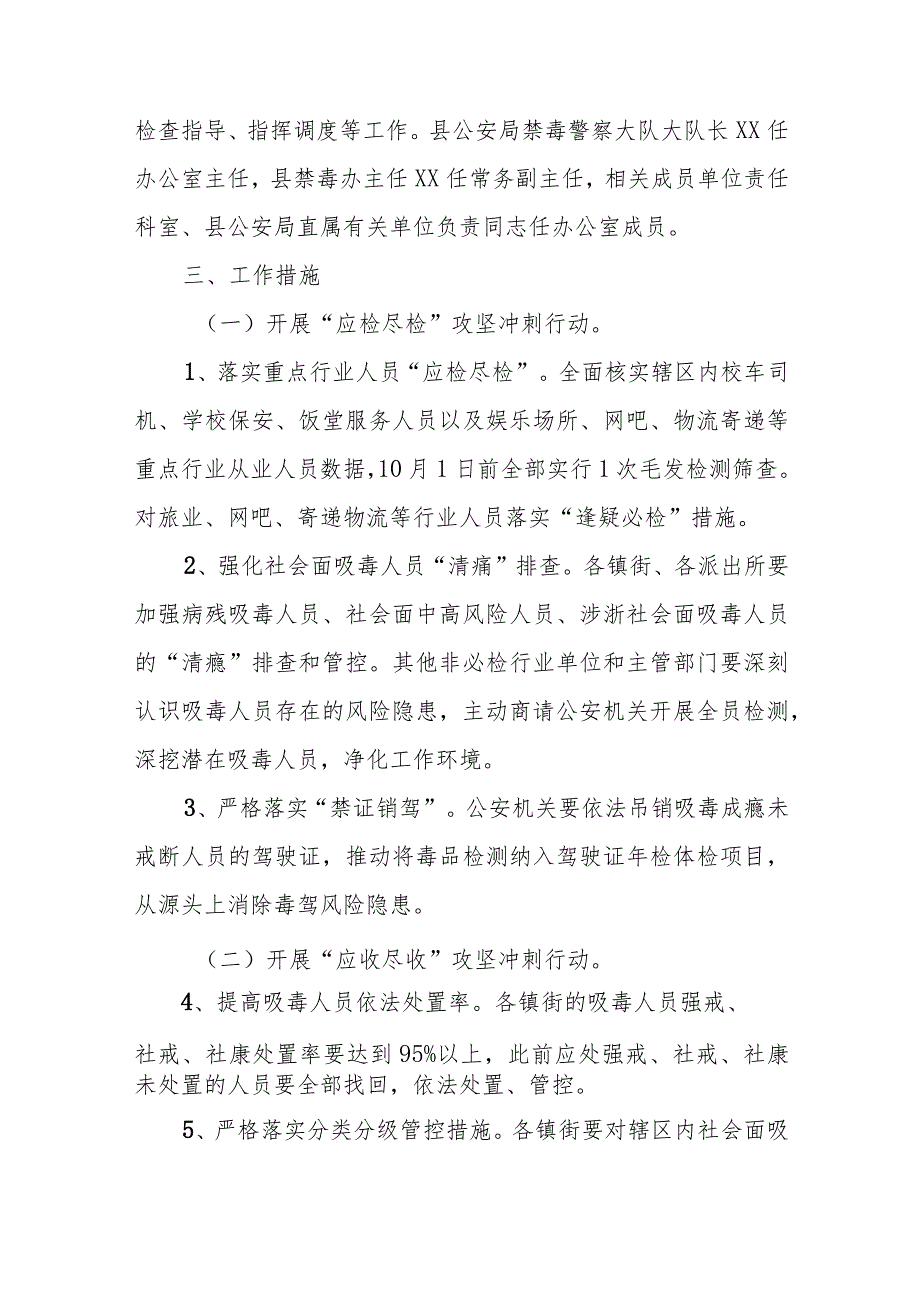 检查指导、指挥调度等工作。县公安局禁毒警察大队大队长 XX 任
办公室主任，县禁毒办主任 XX 任常务副主任，相关成员单位责任
科室、县公安局直属有关单位负责同志任办公室成员。
三、工作措施
（一）开展“应检尽检”攻坚冲刺行动。
1、落实重点行业人员“应检尽检”。全面核实辖区内校车司
机、学校保安、饭堂服务人员以及娱乐场所、网吧、物流寄递等
重点行业从业人员数据，10 月 1 日前全部实行 1 次毛发检测筛查。
对旅业、网吧、寄递物流等行业人员落实“逢疑必检”措施。
2、强化社会面吸毒人员“清痛”排查。各镇街、各派出所要
加强病残吸毒人员、社会面中高风险人员、涉浙社会面吸毒人员
的“清瘾”排查和管控。其他非必检行业单位和主管部门要深刻
认识吸毒人员存在的风险隐患，主动商请公安机关开展全员检测，
深挖潜在吸毒人员，净化工作环境。
3、严格落实“禁证销驾”。公安机关要依法吊销吸毒成瘾未
戒断人员的驾驶证，推动将毒品检测纳入驾驶证年检体检项目，
从源头上消除毒驾风险隐患。
（二）开展“应收尽收”攻坚冲刺行动。
4、提高吸毒人员依法处置率。各镇街的吸毒人员强戒、
社戒、社康处置率要达到 95%以上，此前应处强戒、社戒、社康
未处置的人员要全部找回，依法处置、管控。
5、严格落实分类分级管控措施。各镇街要对辖区内社会面吸